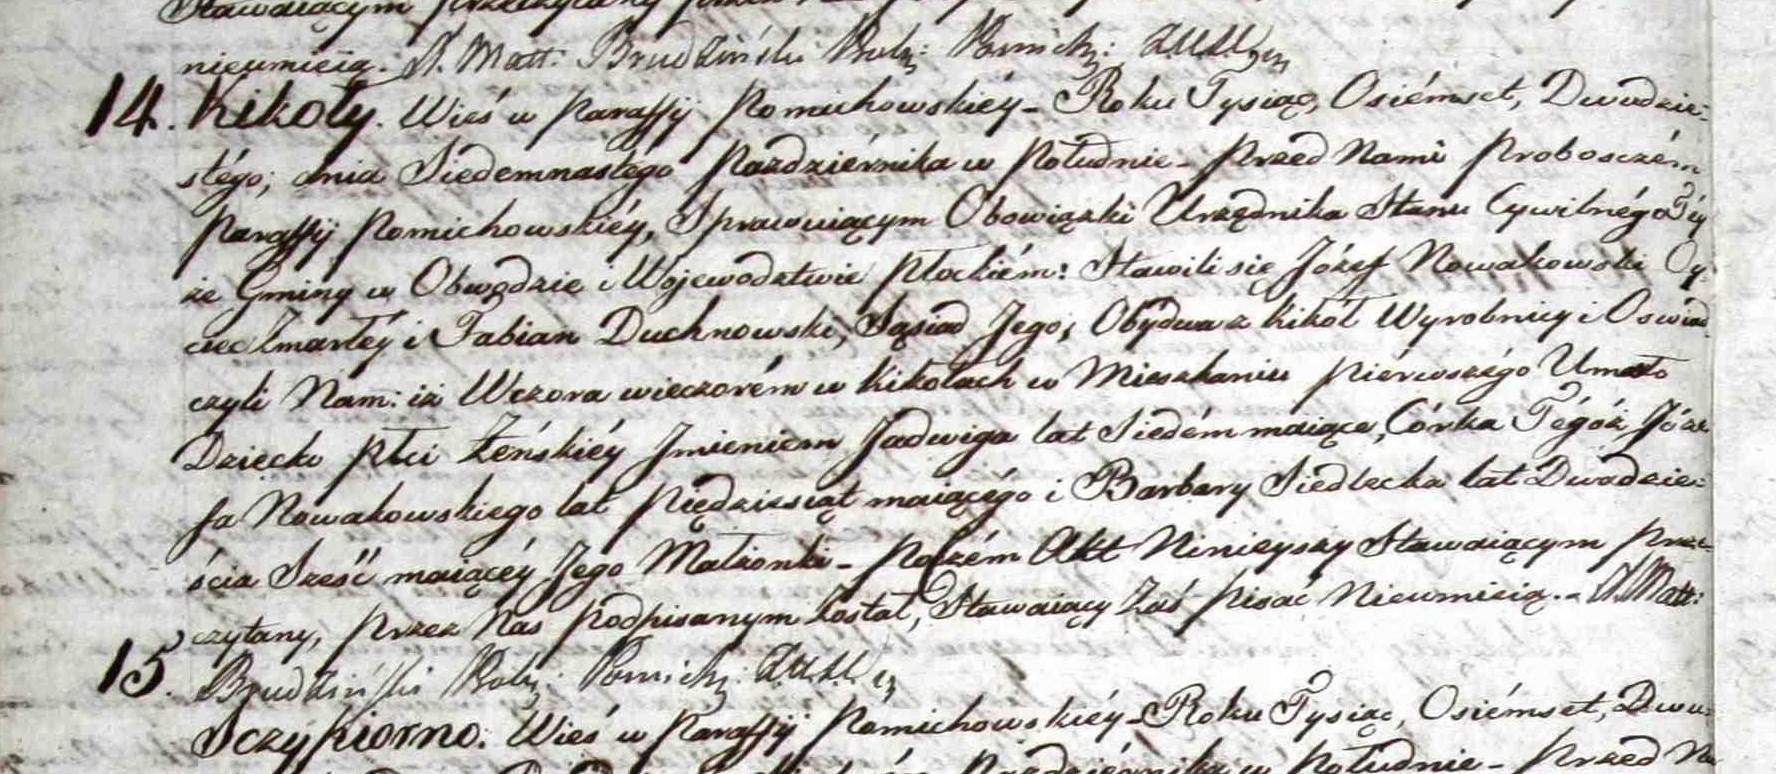 Stawaiącym przeczytany
nieumieią. X. Matt: Brudziński Prob: Pomich: 
14. Kikoły. Wieś w Paraffij Pomichowskiéy - Roku Tysiąc, Osiémset, Dwudzie-
stégo; dnia Siedemnastégo Pazdziérnika w Południe - Przed Nami Proboszczém
Paraffij Pomichowskiéy, Sprawuiącym Obowiązki Urzędnika Stanu Cywilnégo Téy
że Gminy w Obwodzie i Wojewodztwie Płockiém: Stawili się Józef Nowakowski Oy-
ciec Zmarłéy i Fabian Duchnowski, Sąsiad Jego; Obydwa z Kikół Wyrobnicy i Oswiad
czyli Nam: iż Wczora wieczorém w Kikołach w Mieszkaniu piérwszégo Umarło
Dziecko płci Żeńskiéy Jmieniem Jadwiga lat Siedém maiące, Córka Tégóż Józe
fa Nowakowskiego lat Pięddziesiąt maiącégo i Barbary Siedlecka lat Dwadzie-
ścia Sześć maiącéy Jego Małżonki - Poczém Akt Ninieyszy Stawaiącym prze-
czytany, przez Nas podpisanym został, Stawaiący Zaś pisać Nieumieią. - X. Matt:
15. Brudziński Prob: Pomich:
Sczypiorno. Wieś w Paraffij Pomichowskiéy - Roku Tysiąc, Osiémset, Dwu-
Pazdziérnika w Południe - Przed Na